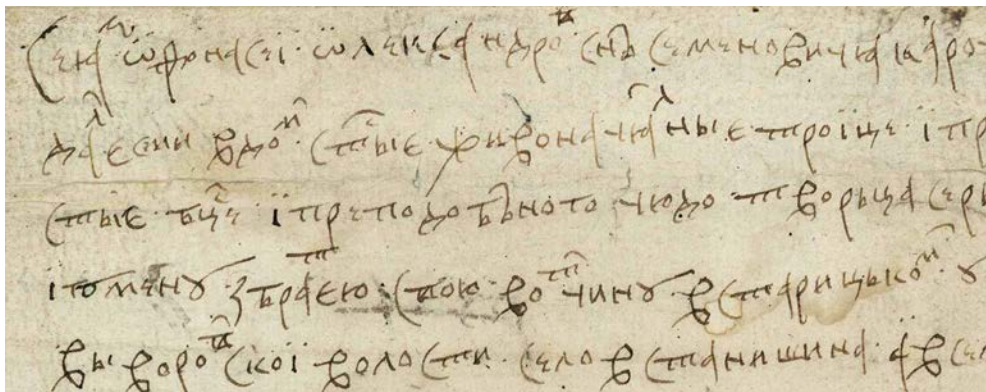 Се ꙗ ѡѳонасеі ѡлександров снъ семеновича каро
дал есми в дом стые живоначалные троіце і пр
стые бце і преподобъного чюдотворца серь
ігоменꙋ з братею свою вотчинꙋ в старицьком ꙋ
въ Іворовскоі волости село встанишина а в се